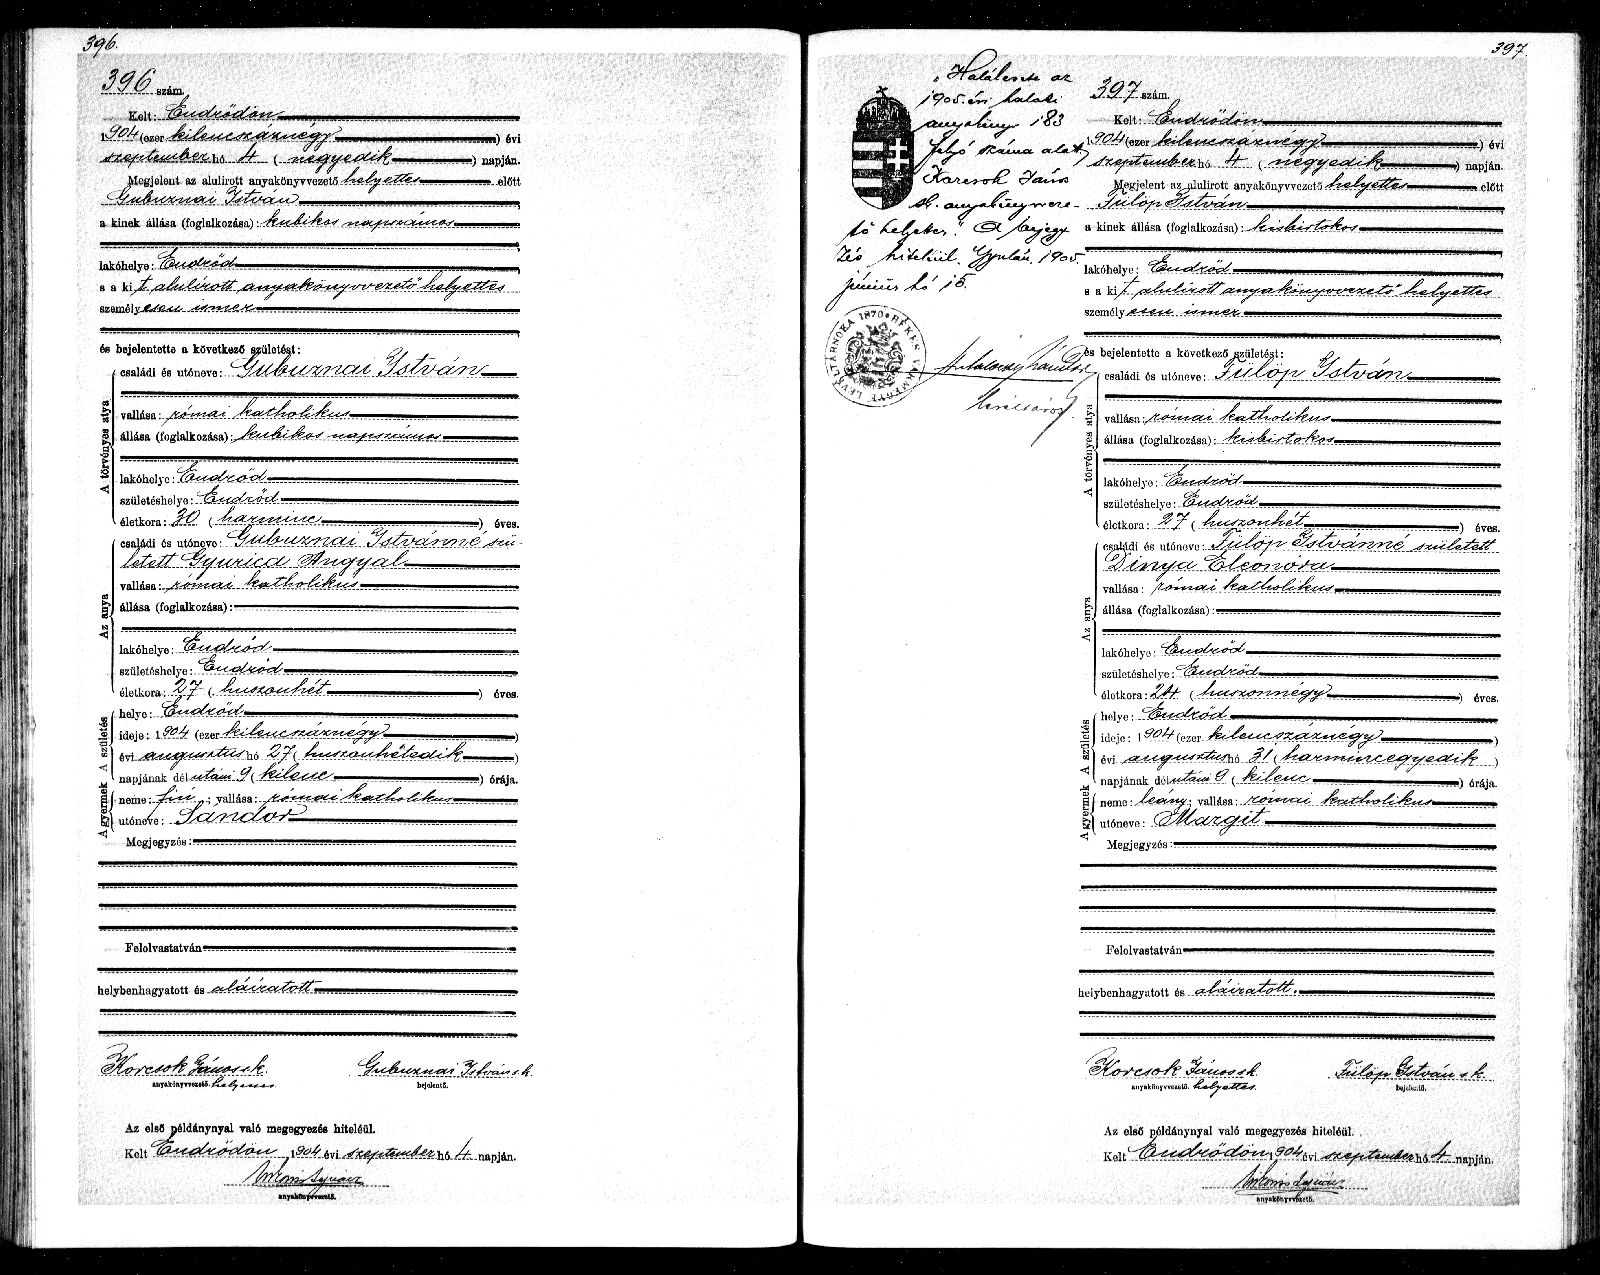 396.
396 szám.
Kelt: Endrődön
1904 (ezer kilencszáznégy) évi
szeptember hó 4 (negyedik) napján.
Megjelent az alulirott anyakönyvvezető helyettes előtt
Gubuznai István
a kinek állása (foglalkozása): kubikos napszámos
lakóhelye: Endrőd
s a kit alulírott anyakönyvvezető helyettes
személyesen ismer
és bejelentette a következő születést:
A törvényes atya
családi és utóneve: Gubuznai István
vallása: római katholikus
állása (foglalkozása): kubikos napszámos
lakóhelye: Endrőd
születéshelye: Endrőd
életkora: 30 (harminc) éves.
Az anya
családi és utóneve: Gubuznai Istvánné szü-
letett Gyuricza Angyal
vallása: római katholikus
állása (foglalkozása):
lakóhelye: Endrőd
születéshelye: Endrőd
életkora: 27 (huszonhét) éves.
A születés
helye: Endrőd
ideje: 1904 (ezer kilencszáznégy)
évi augusztus hó 27 (huszonhetedik)
napjának délután 9 (kilenc) órája.
A gyermek
neme: fiú; vallása: római katholikus
utóneve: Sándor
Megjegyzés:
Felolvastatván
helybenhagyatott és aláíratott
Korcsok János sk. Gubuznai István sk.
anyakönyvvezető helyettes bejelentő.
Az első példánynyal való megegyezés hiteléül.
Kelt Endrődön 1904 évi szeptember hó 4 napján.
anyakönyvvezető.
397
"Halálesete az
1905. évi halotti
anyakönyv 183
folyó száma alatt
Korcsok János
sk. anyakönyvveze-
tő helyettes." A bejegy-
zés hiteléül. Gyulán, 1905.
június hó 15.
BÉKÉS VÁRMEGYE LEVÉLTÁRNOKA 1870
397 szám.
Kelt: Endrődön
1904 (ezer kilencszáznégy) évi
szeptember hó 4 (negyedik) napján.
Megjelent az alulirott anyakönyvvezető helyettes előtt
Fülöp István
a kinek állása (foglalkozása): kisbirtokos
lakóhelye: Endrőd
s a kit alulírott anyakönyvvezető helyettes
személyesen ismer
és bejelentette a következő születést:
A törvényes atya
családi és utóneve: Fülöp István
vallása: római katholikus
állása (foglalkozása): kisbirtokos
lakóhelye: Endrőd
születéshelye: Endrőd
életkora: 27 (huszonhét) éves.
Az anya
családi és utóneve: Fülöp Istvánné született
Dinya Eleonora
vallása: római katholikus
állása (foglalkozása):
lakóhelye: Endrőd
születéshelye: Endrőd
életkora: 24 (huszonnégy) éves.
A születés
helye: Endrőd
ideje: 1904 (ezer kilencszáznégy)
évi augusztus hó 31 (harmincegyedik)
napjának délután 9 (kilenc) órája.
A gyermek
neme: leány; vallása: római katholikus
utóneve: Margit
Megjegyzés:
Felolvastatván
helybenhagyatott és aláíratott.
Korcsok János sk Fülöp István sk.
anyakönyvvezető helyettes. bejelentő.
Az első példánynyal való megegyezés hiteléül.
Kelt Endrődön, 1904 évi szeptember hó 4. napján.
anyakönyvvezető.